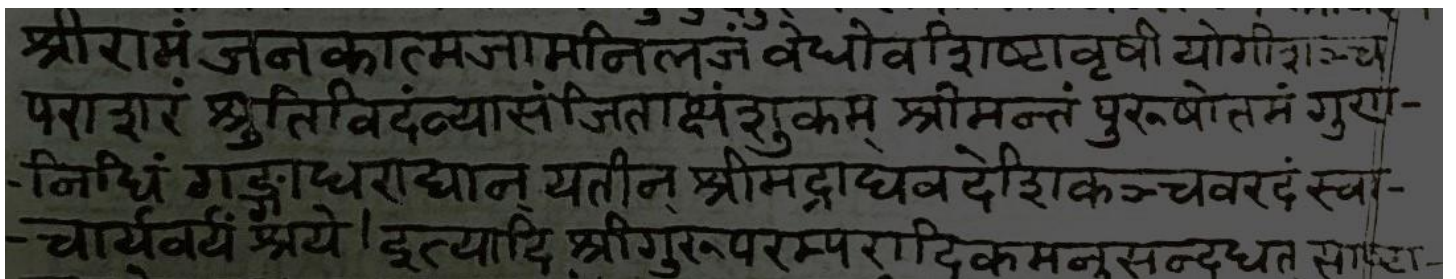 श्रीरामं जनकात्मजामनिलजं वेधोवशिष्टावृषी योगीशञ्च
पराशरं श्रुतिविदंव्यासंजिताक्षंशुकम् श्रीमन्तं पुरूषोतमं गुण-
-निधिं गङ्गाधराद्यान् यतीन् श्रीमद्राघवदेशिकञ्चवरदं स्वा-
-चार्यवर्यं श्रये। इत्यादि श्रीगुरूपरम्परादिकमनुसन्दधत साष्टा-